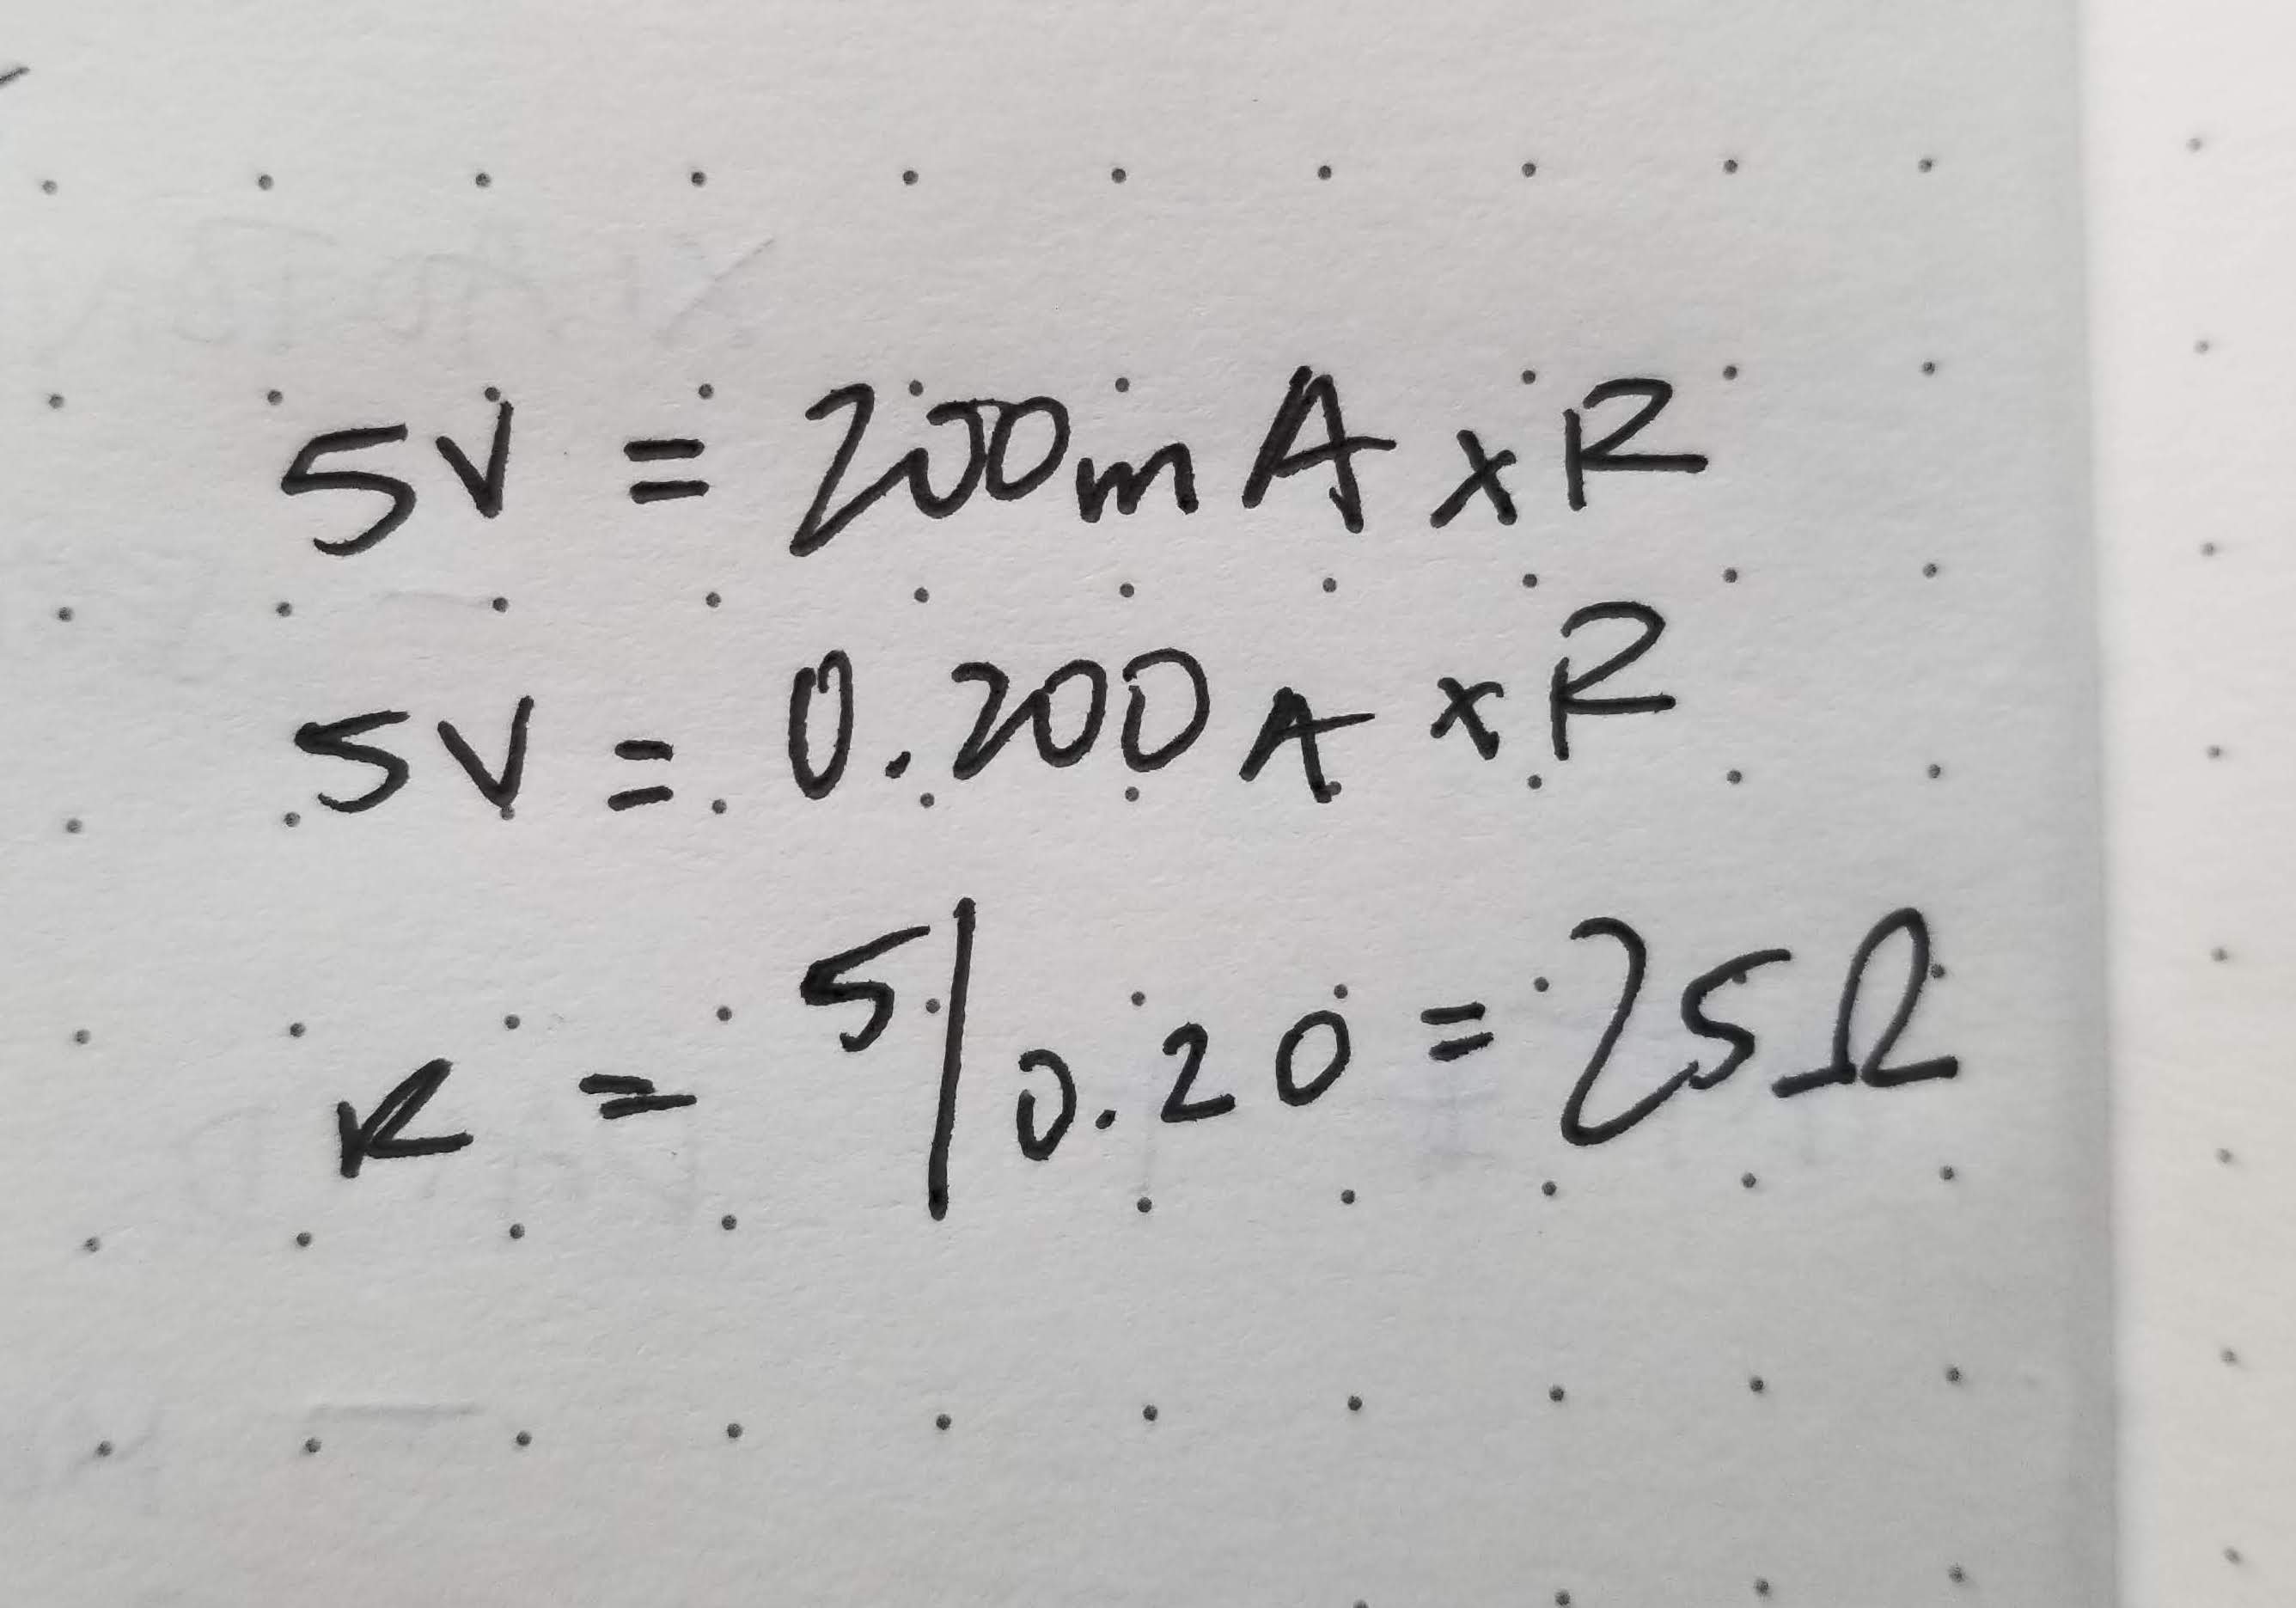 5V = 200mA x R
5V = 0.200A x R
R = 5/0.20 = 25Ω